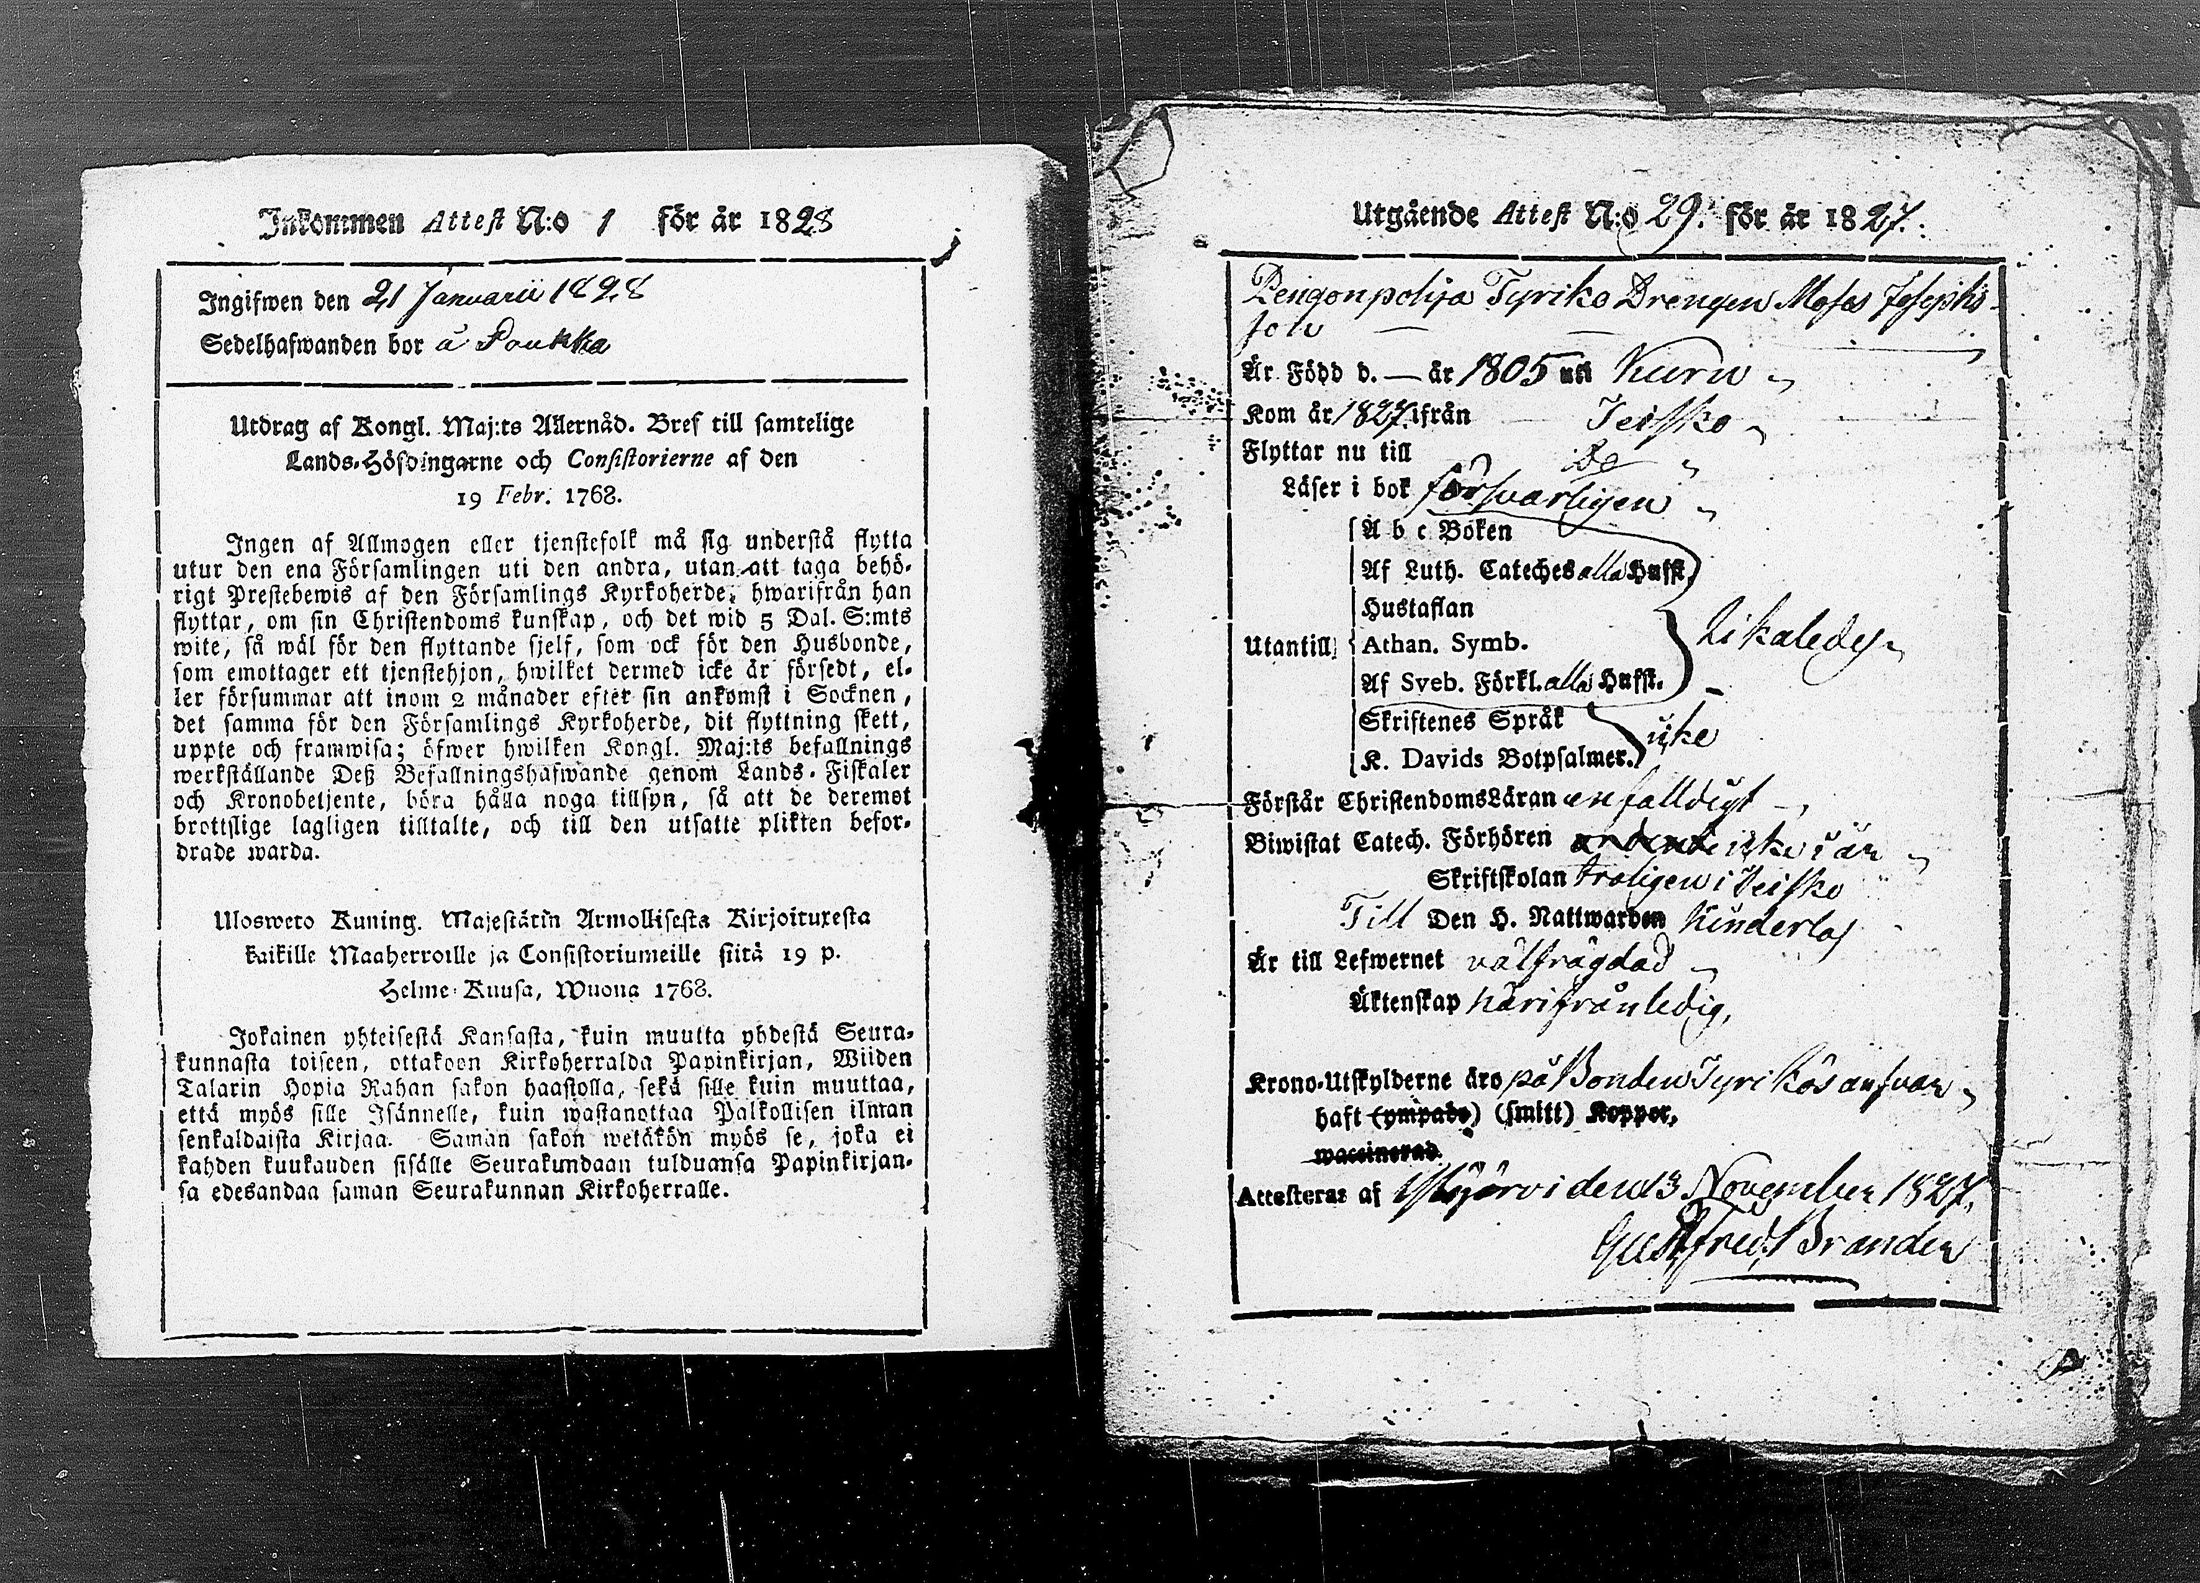 Inkommen Attest N:o 1 för år 1828
Ingifwen den 21 Januarii 1828
Sedelhafwanden bor å Poukka
Utdrag af Kongl. Maj:ts Allernåd. Bref till samtelige
Lands-Höfdingarne och Consistorierne af den
19 Febr. 1768.
Ingen af Allmogen eller tjenstefolk må sig understå flytta
utur den ena Församlingen uti den andra, utan att taga behö-
rigt Prestebewis af den Församlings Kyrkoherde, hwarifrån han
flyttar, om sin Christendoms kunskap, och det wid 5 Dal. S:mts
wite, så wäl för den flyttande sjelf, som ock för den Husbonde,
som emottager ett tjenstehjon, hwilket dermed icke är försedt, el-
ler försummar att inom 2 månader efter sin ankomst i Socknen,
det samma för den Församlings Kyrkoherde, dit flyttning skett,
uppte och framwisa; öfwer hwilken Kongl. Maj:ts befallnings
werkställande Deß Befallningshafwande genom Lands-Fiskaler
och Kronobetjente, böra hålla noga tillsyn, så att de deremot
brottslige lagligen tilltalte, och till den utsatte plikten befor-
drade warda.
Ulosweto Kuning. Majestätin Armollisesta Kirjoituxesta
kaikille Maaherroille ja Consistoriumeille siitä 19 p.
Helme-Kuusa, Wuona 1768.
Jokainen yhteisestä Kansasta, kuin muutta yhdestä Seura-
kunnasta toiseen, ottakoon Kirkoherralda Papinkirjan, Wiiden
Talarin Hopia Rahan sakon haastolla, sekä sille kuin muuttaa,
että myös sille Isännelle, kuin wastanottaa Palkollisen ilman
senkaldaista Kirjaa. Saman sakon wetäkön myös se, joka ei
kahden kuukauden sisälle Seurakundaan tulduansa Papinkirjan-
sa edesandaa saman Seurakunnan Kirkoherralle.
Utgående Attest N:o 29. för år 1827.
Pengonpohja Tyriko Drengen Moses Josephs-
son
Är Född d. — år 1805 uti Kuru
Kom år 1827 ifrån Teisko
Flyttar nu till Do
Läser i bok försvarligen
Utantill
A b c Boken
Af Luth. Cateches alla Hufst.
Hustaflan
Athan. Symb.
Af Sveb. Förkl. alla Hufst.
likaledes
Skriftenes Språk
K. Davids Botpsalmer.
icke
Förstår ChristendomsLäran enfalldigt
Biwistat Catech. Förhören icke i år
Skriftskolan troligen i Teisko
Till Den H. Nattwarden hinderlös
Är till Lefwernet välfrägdad
Äktenskap härifrån ledig,
Krono-Utskylderne äro på Bonden Tyrikös ansvar
haft (ympade) (smitt) Koppor,
waccinerad.
Attesteras af Ylöjärvi den 13 November 1827.
Gust. Fred. Brander